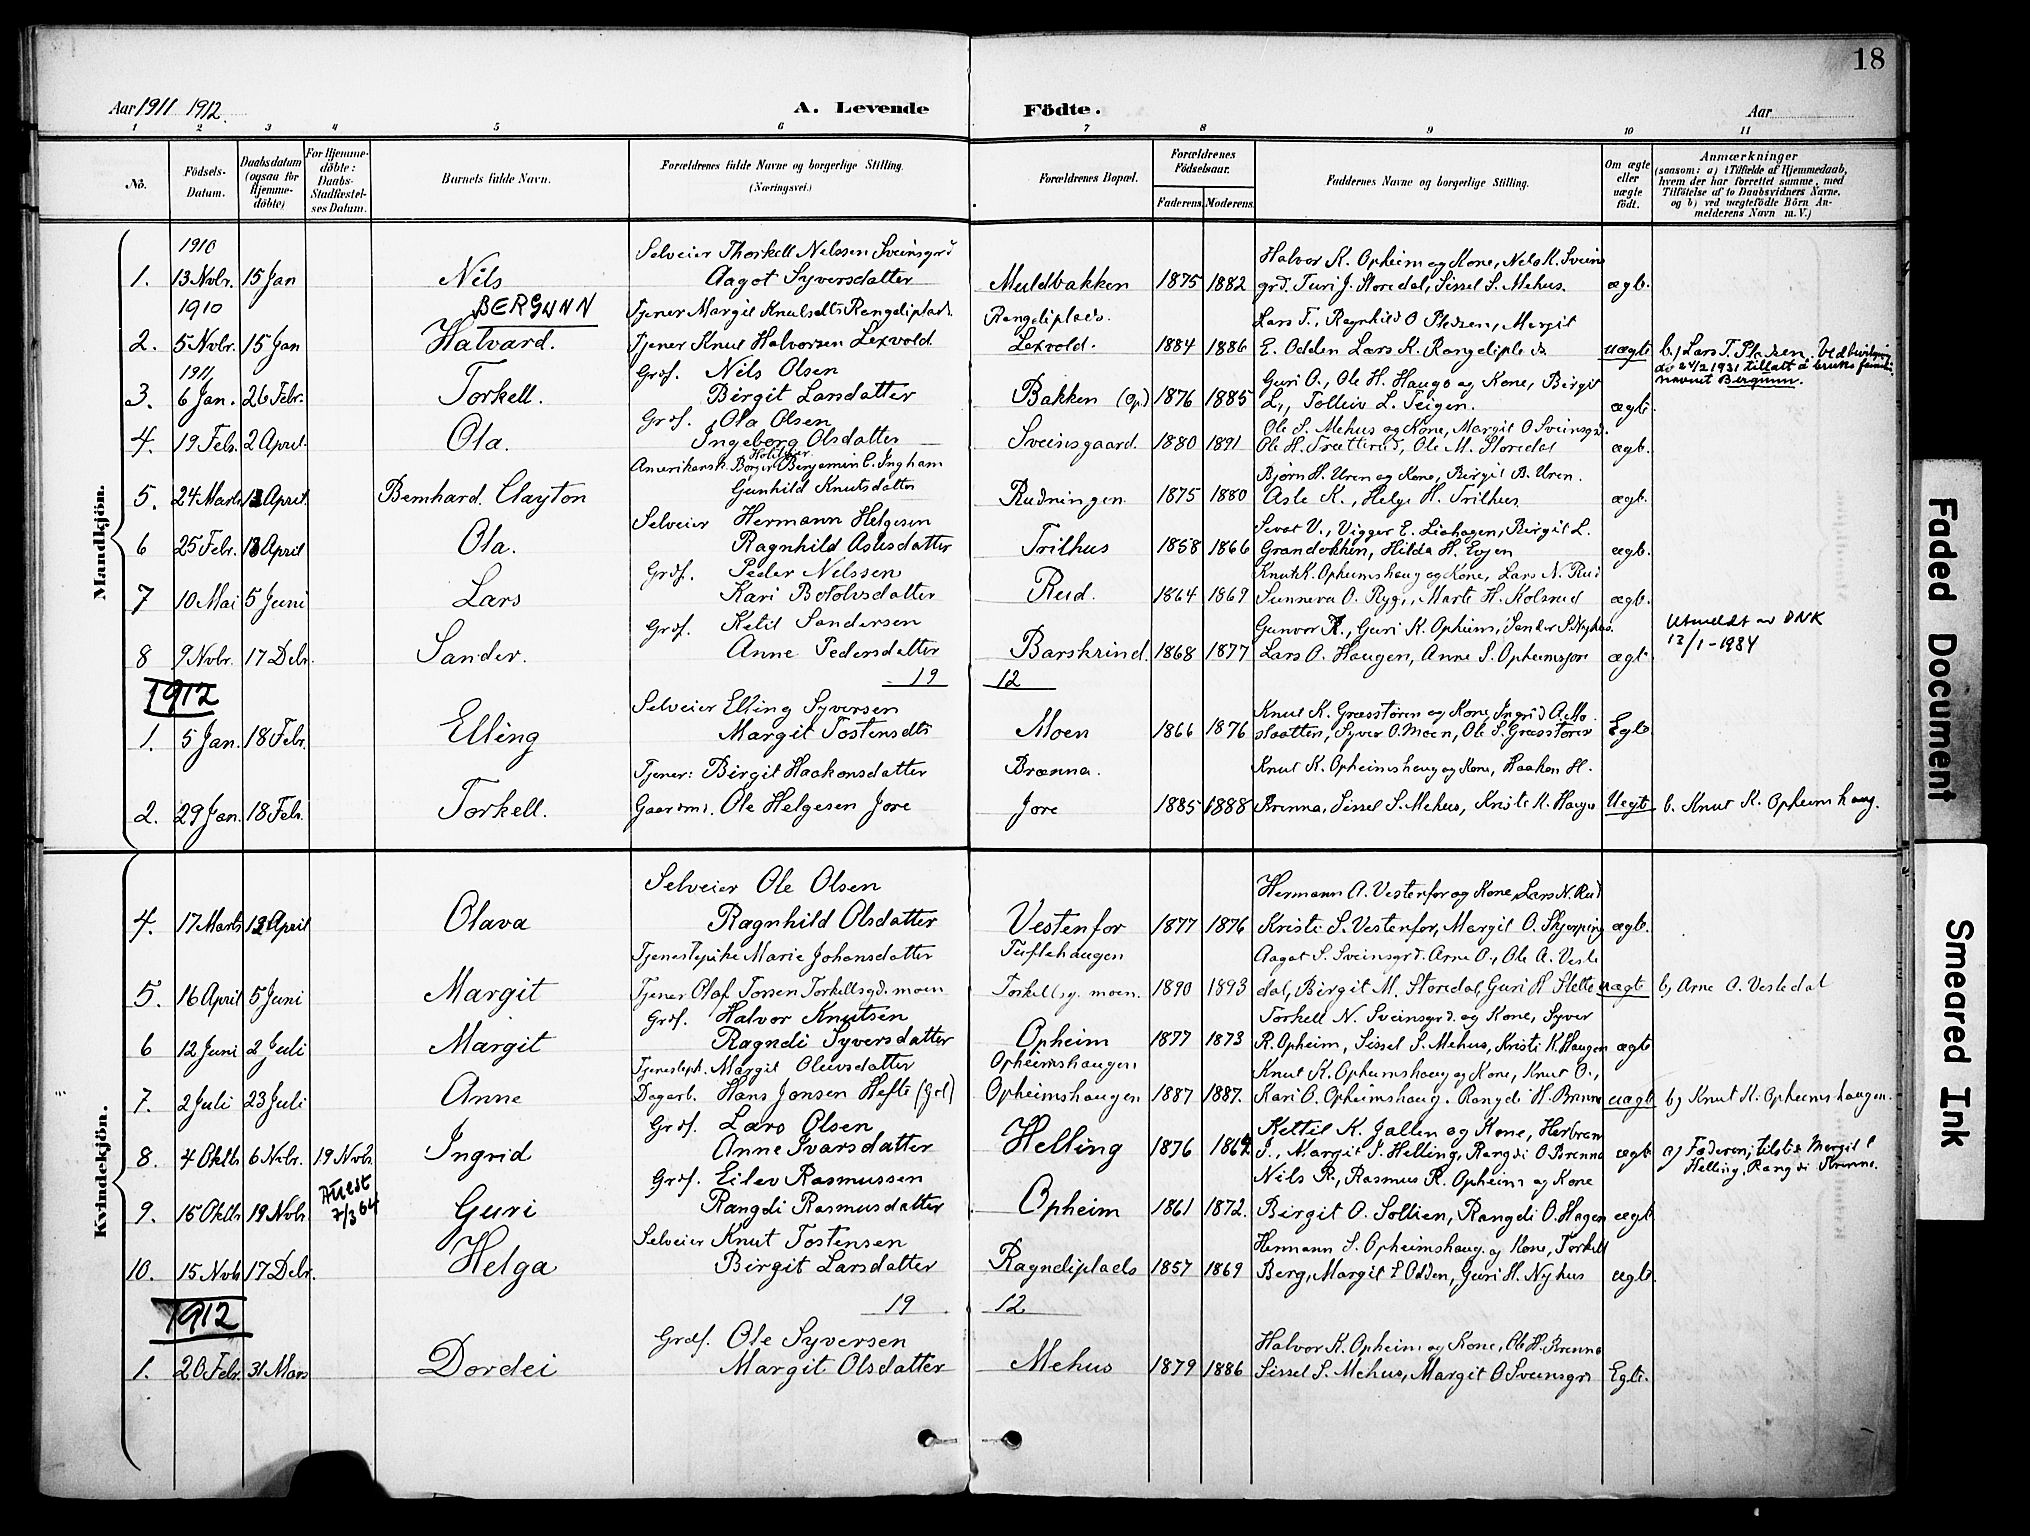 18
Aar 1911 1912.
A. Levende Födte.
Aar
1 2 3 4 5 6 7 8 9 10 11
Nō.
Födsels-Datum.
Daabsdatum (ogsaa för Hjemme-döbte)
For Hjemme-döbte: Daabs-Stadfæstel-ses Datum.
Barnets fulde Navn.
Forældrenes fulde Navne og borgerlige Stilling. (Næringsvei.)
Forældrenes Bopæl.
Forældrenes Födselsaar.
Faderens. Moderens.
Faddernes Navne og borgerlige Stilling.
Om ægte eller uægte födt.
Anmærkninger
(saasom: a) i Tilfælde af Hjemmedaab, hvem der har forrettet samme, med Tilföielse af to Daabsvidners Navne, og b) ved uægtefödte Börn An-melderens Navn m. V.)
Mandkjön.
1910
Selveier Thorkell Nelssen Sveinsgrd
Halvor K. Opheim og Kone, Nels K. Sveins
1. 13 Novbr. 15 Jan Nils Aagot Syversdatter Muldbakken 1875 1882 grd. Turi J. Storedal, Sissel S. Mehus. ægt.
1910
BERGUNN
Tjener Margit Knutsdtr Rangdiplads. Rangdiplads.
Lars T., Ragnhild O Pladsen, Margit
2. 5 Novbr. 15 Jan Halvard. Tjener Knut Halvorsen Lexvold Lexvold. 1884 1886 E. Odden Lars K. Rangdiplads uægte b.) Lars T. Pladsen. Ved bevilgning
av 24/2 1931 tillatt å bruke familie
navnet Bergunn.
1911
Grdf. Nils Olsen
Guri O., Ole H. Haugo og Kone, Birgit
3. 6 Jan. 26 Febr. Torkell. Birgit Larsdatter Bakken (Op.) 1876 1885 L., Tolleiv L. Teigen. ægt.
Grdf. Ola Olsen
Ole S. Mehus og Kone, Margit O Sveinsgrd.
4. 19 Febr. 2 April. Ola. Ingeborg Olsdatter Sveinsgaard. 1880 1891 Ole H. Trætterud, Ole M. Storedal ægt.
Amerikansk Borger Benjamin C. Ingham
Bjørn H. Uren og Kone, Birgit B. Uren.
5. 24 Marts 13 April. Bernhard. Clayton Gunhild Knutsdatter Rudningen 1875 1880 Asle K., Helge H. Trilhus. ægt.
Selveier Hermann Helgesen
Sevat V., Vigger E. Liahagen, Birgit L.
6 25 Febr. 13 April Ola. Ragnhild Aslesdatter Trilhus 1858 1866 Grandokken, Hilda H. Evjen ægt.
Grdf. Peder Nilssen
Knut K. Opheimshaug og Kone, Lars N. Rud
7 10 Mai 5 Juni Lars Kari Botolvsdatter Rud. 1864 1869 Sunneva O. Rygi, Marte H. Kolsrud ægt.
Grdf. Ketil Sandersen
Gunvor K., Guri K. Opheim, Sander S. Nyhus.
Utmeldt av DNK
12/1-1934
8 9 Novbr. 17 Debr. Sander. Anne Pedersdatter Barskrind. 1868 1877 Lars O. Haugen, Anne S. Opheimsjore ægt.
19 12
1912
Selveier Elling Syversen
Knut K. Græsstøren og Kone, Ingrid A. Mo
1. 5 Jan. 18 Febr. Elling Margit Tostensdtr Moen 1866 1876 slaatten, Syver O. Moen, Ole S. Græsstøren Egte
Tjener: Birgit Haakonsdatter Brænna.
Knut K. Opheimshaug og Kone, Haakon H.
2. 29 Jan. 18 Febr. Torkell. Gaardm. Ole Helgesen Jore Jore 1885 1888 Brenna, Sissel S. Mehus, Kristi K. Haugo Uegte b. Knut K. Opheimshaug.
Kvindekjön.
Selveier Ole Olsen
Hermann A. Vestenfor og Kone, Lars N. Rud
4. 17 Marts 13 April Olava Ragnhild Olsdatter Vestenfor 1877 1876 Kristi S. Vestenfor, Margit O. Skjerping ægt.
Tjenestepike Marie Johansdatter Tuftehaugen
Aagot S. Sveinsgrd. Arne O., Ole A. Vesle
5. 16 April 5 Juni Margit Tjener Olaf Torsen Torkellsgd. moen Torkellsg. moen. 1890 1893 dal, Birgit M. Storedal, Guri H Slette uægte b) Arne O. Vesledal
Grdf. Halvor Knutsen
Torkell N. Sveinsgrd. og Kone, Syver
6 12 Juni 2 Juli Margit Ragndi Syversdatter Opheim 1877 1873 R. Opheim, Sissel S. Mehus, Kristi K. Haugen ægte
Tjenestepk. Margit Olavsdatter Opheimshaugen
Knut K. Opheimshaug og Kone, Knut O.,
7. 2 Juli 23 Juli Anne Dagarb. Hans Jonsen Hefte (Gol) Opheimshaugen 1887 1887. Kari O. Opheimshaug. Rangdi H. Brenna uægte b) Knut K. Opheimshaugen.
Grdf. Lars Olsen
Kettil K. Jallen og Kone, Herbrand
8. 4 Oktbr 6 Nvbr. 19 Novbr. Ingrid Anne Ivarsdatter Helling 1876 1864 I., Margit I. Helling, Rangdi O Brenna ægt. a) Faderen; tilst. Margit I Helling, Rangdi Brenna.
Attest 7/3 64
Grdf. Eilev Rasmussen
Nils R., Rasmus R. Opheim og Kone
9. 15 Oktbr 19 Novbr. Guri Rangdi Rasmusdatter Opheim 1861 1872. Birgit O. Sollien, Rangdi O. Hagen ægt
Selveier Knut Tostensen
Hermann S. Opheimshaug og Kone, Torkell
10. 15 Novbr 17 Debr. Helga Birgit Larsdatter Ragndiplads 1857 1869 Berg, Margit E Odden, Guri H. Nyhus ægt.
19 12
1912
Grdf. Ole Syversen
Halvor K. Opheim og Kone, Ole H. Brenna
1. 20 Febr. 31 Mars Dordei Margit Olsdatter Mehus 1879 1886 Sissel S. Mehus, Margit O Sveinsgrd Egte.
Faded Document
Smeared Ink